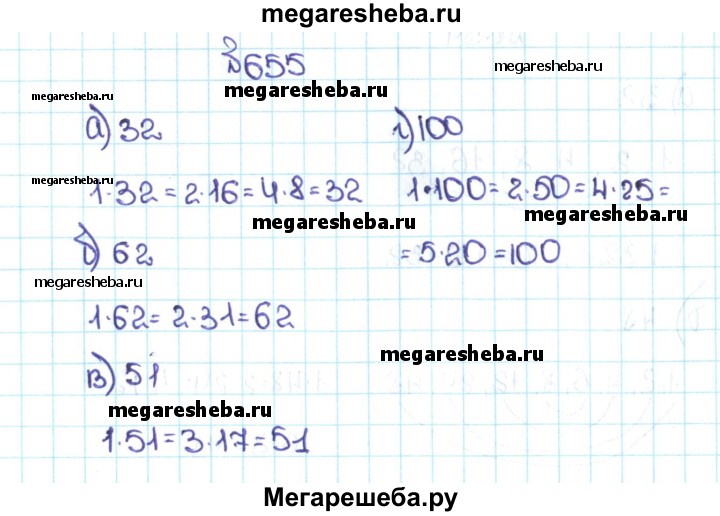 megaresheba.ru
№655
megaresheba.ru
megaresheba.ru
megaresheba.ru
а) 32
1·32=2·16=4·8=32
megaresheba.ru
megaresheba.ru
б) 62
megaresheba.ru
1·62=2·31=62
в) 51
megaresheba.ru
1·51=3·17=51
г) 100
1·100=2·50=4·25=
megaresheba.ru
=5·20=100
megaresheba.ru
Мегарешеба.ру